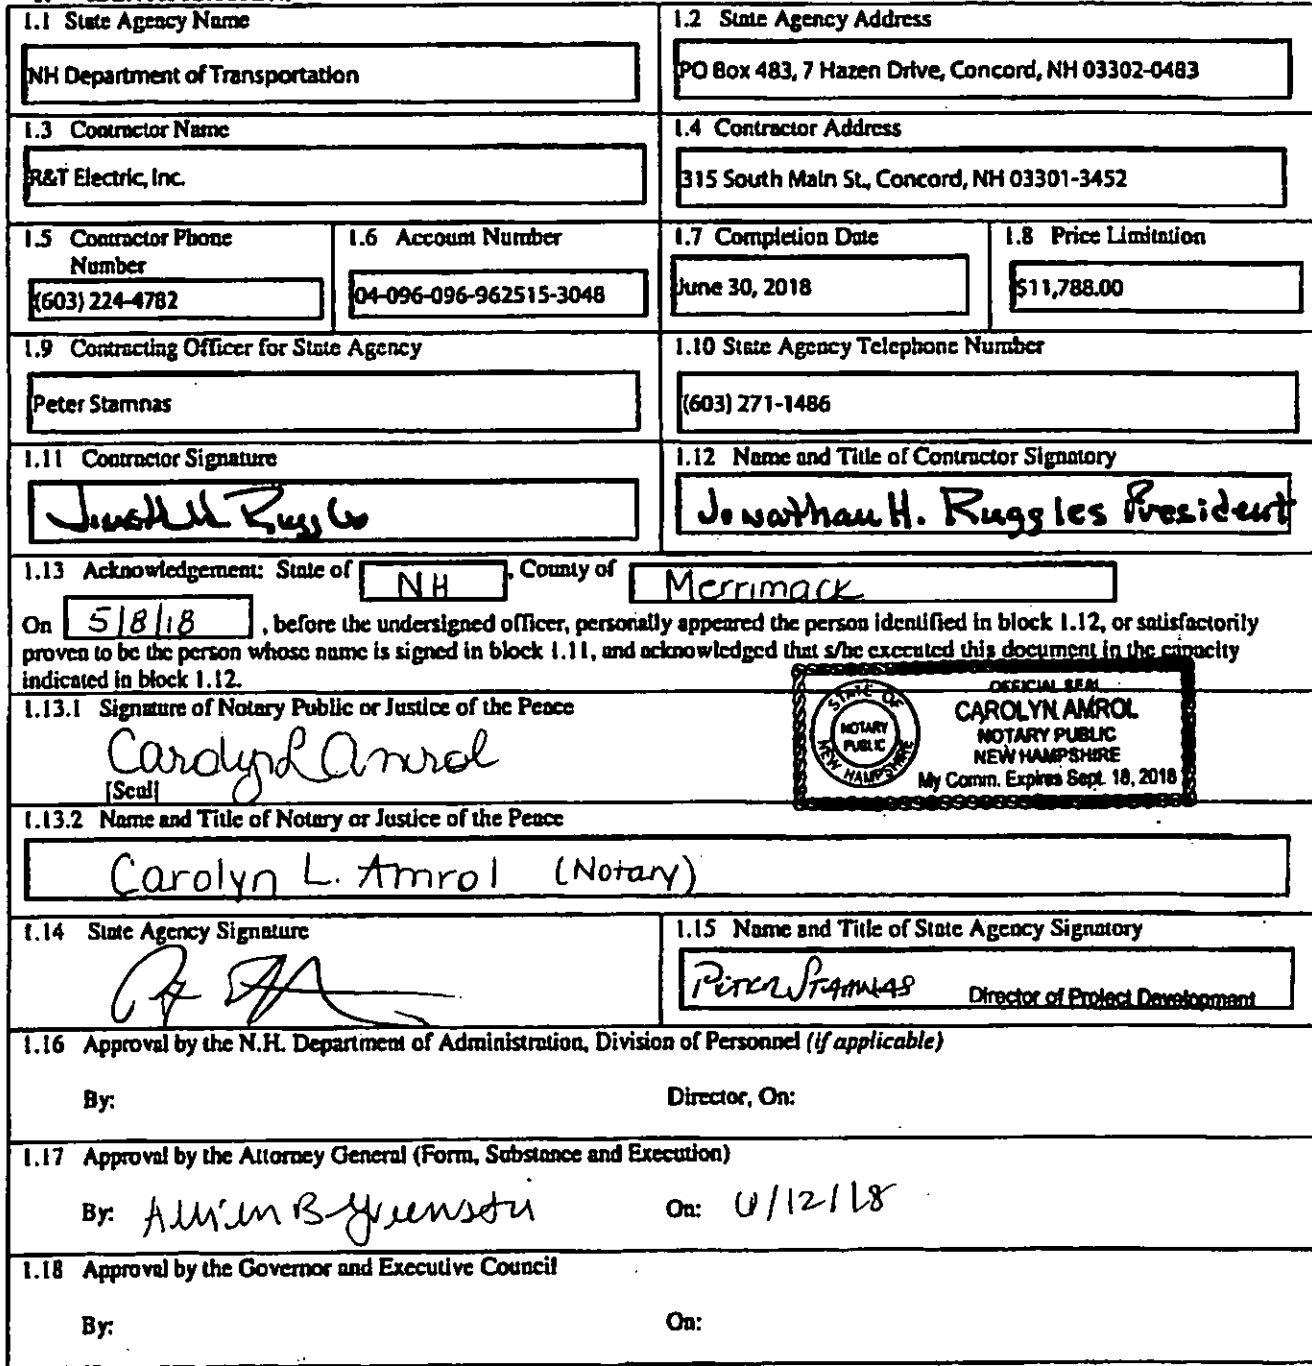 1.1 State Agency Name
NH Department of Transportation
1.2 State Agency Address
PO Box 483, 7 Hazen Drive, Concord, NH 03302-0483
1.3 Contractor Name
R&T Electric, Inc.
1.4 Contractor Address
315 South Main St., Concord, NH 03301-3452
1.5 Contractor Phone
Number
(603) 224-4782
1.6 Account Number
04-096-096-962515-3048
1.7 Completion Date
June 30, 2018
1.8 Price Limitation
$11,788.00
1.9 Contracting Officer for State Agency
Peter Stamnas
1.10 State Agency Telephone Number
(603) 271-1486
1.11 Contractor Signature
1.12 Name and Title of Contractor Signatory
Jonathan H. Ruggles President
1.13 Acknowledgement: State of NH , County of Merrimack
On 5/8/18 , before the undersigned officer, personally appeared the person identified in block 1.12, or satisfactorily
proven to be the person whose name is signed in block 1.11, and acknowledged that s/he executed this document in the capacity
indicated in block 1.12.
OFFICIAL SEAL
CAROLYN AMROL
NOTARY PUBLIC
NEW HAMPSHIRE
My Comm. Expires Sept. 18, 2018
STATE OF
NOTARY
PUBLIC
NEW HAMPSHIRE
1.13.1 Signature of Notary Public or Justice of the Peace
Carolyn L Amrol
[Seal]
1.13.2 Name and Title of Notary or Justice of the Peace
Carolyn L. Amrol (Notary)
1.14 State Agency Signature
1.15 Name and Title of State Agency Signatory
Peter Stamnas Director of Project Development
1.16 Approval by the N.H. Department of Administration, Division of Personnel (if applicable)
By: Director, On:
1.17 Approval by the Attorney General (Form, Substance and Execution)
By: On: 6/12/18
1.18 Approval by the Governor and Executive Council
By: On: